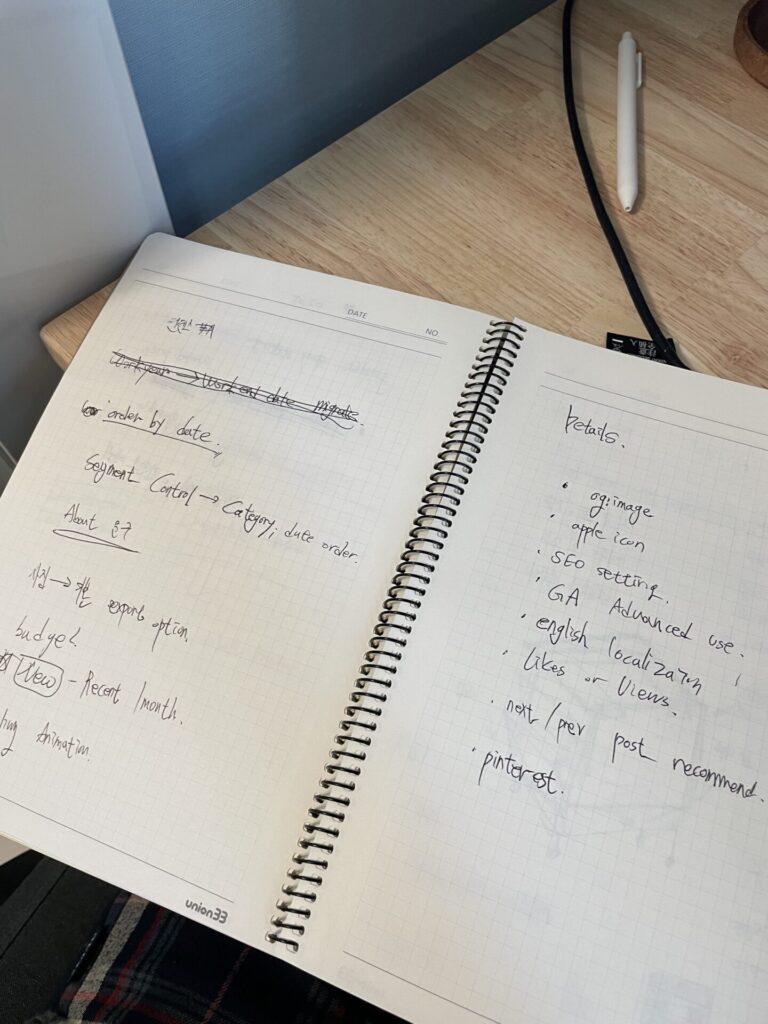 DATE
NO
Work year → Work end date migrate.
order by date.
Segment Control → Category, date order.
About
export option.
budget
New - Recent 1month.
Animation.
union33
Details.
· og:image
· apple icon
· SEO setting.
· GA Advanced use.
· english localization
· Likes or Views.
· next/prev post recommend.
· pinterest.